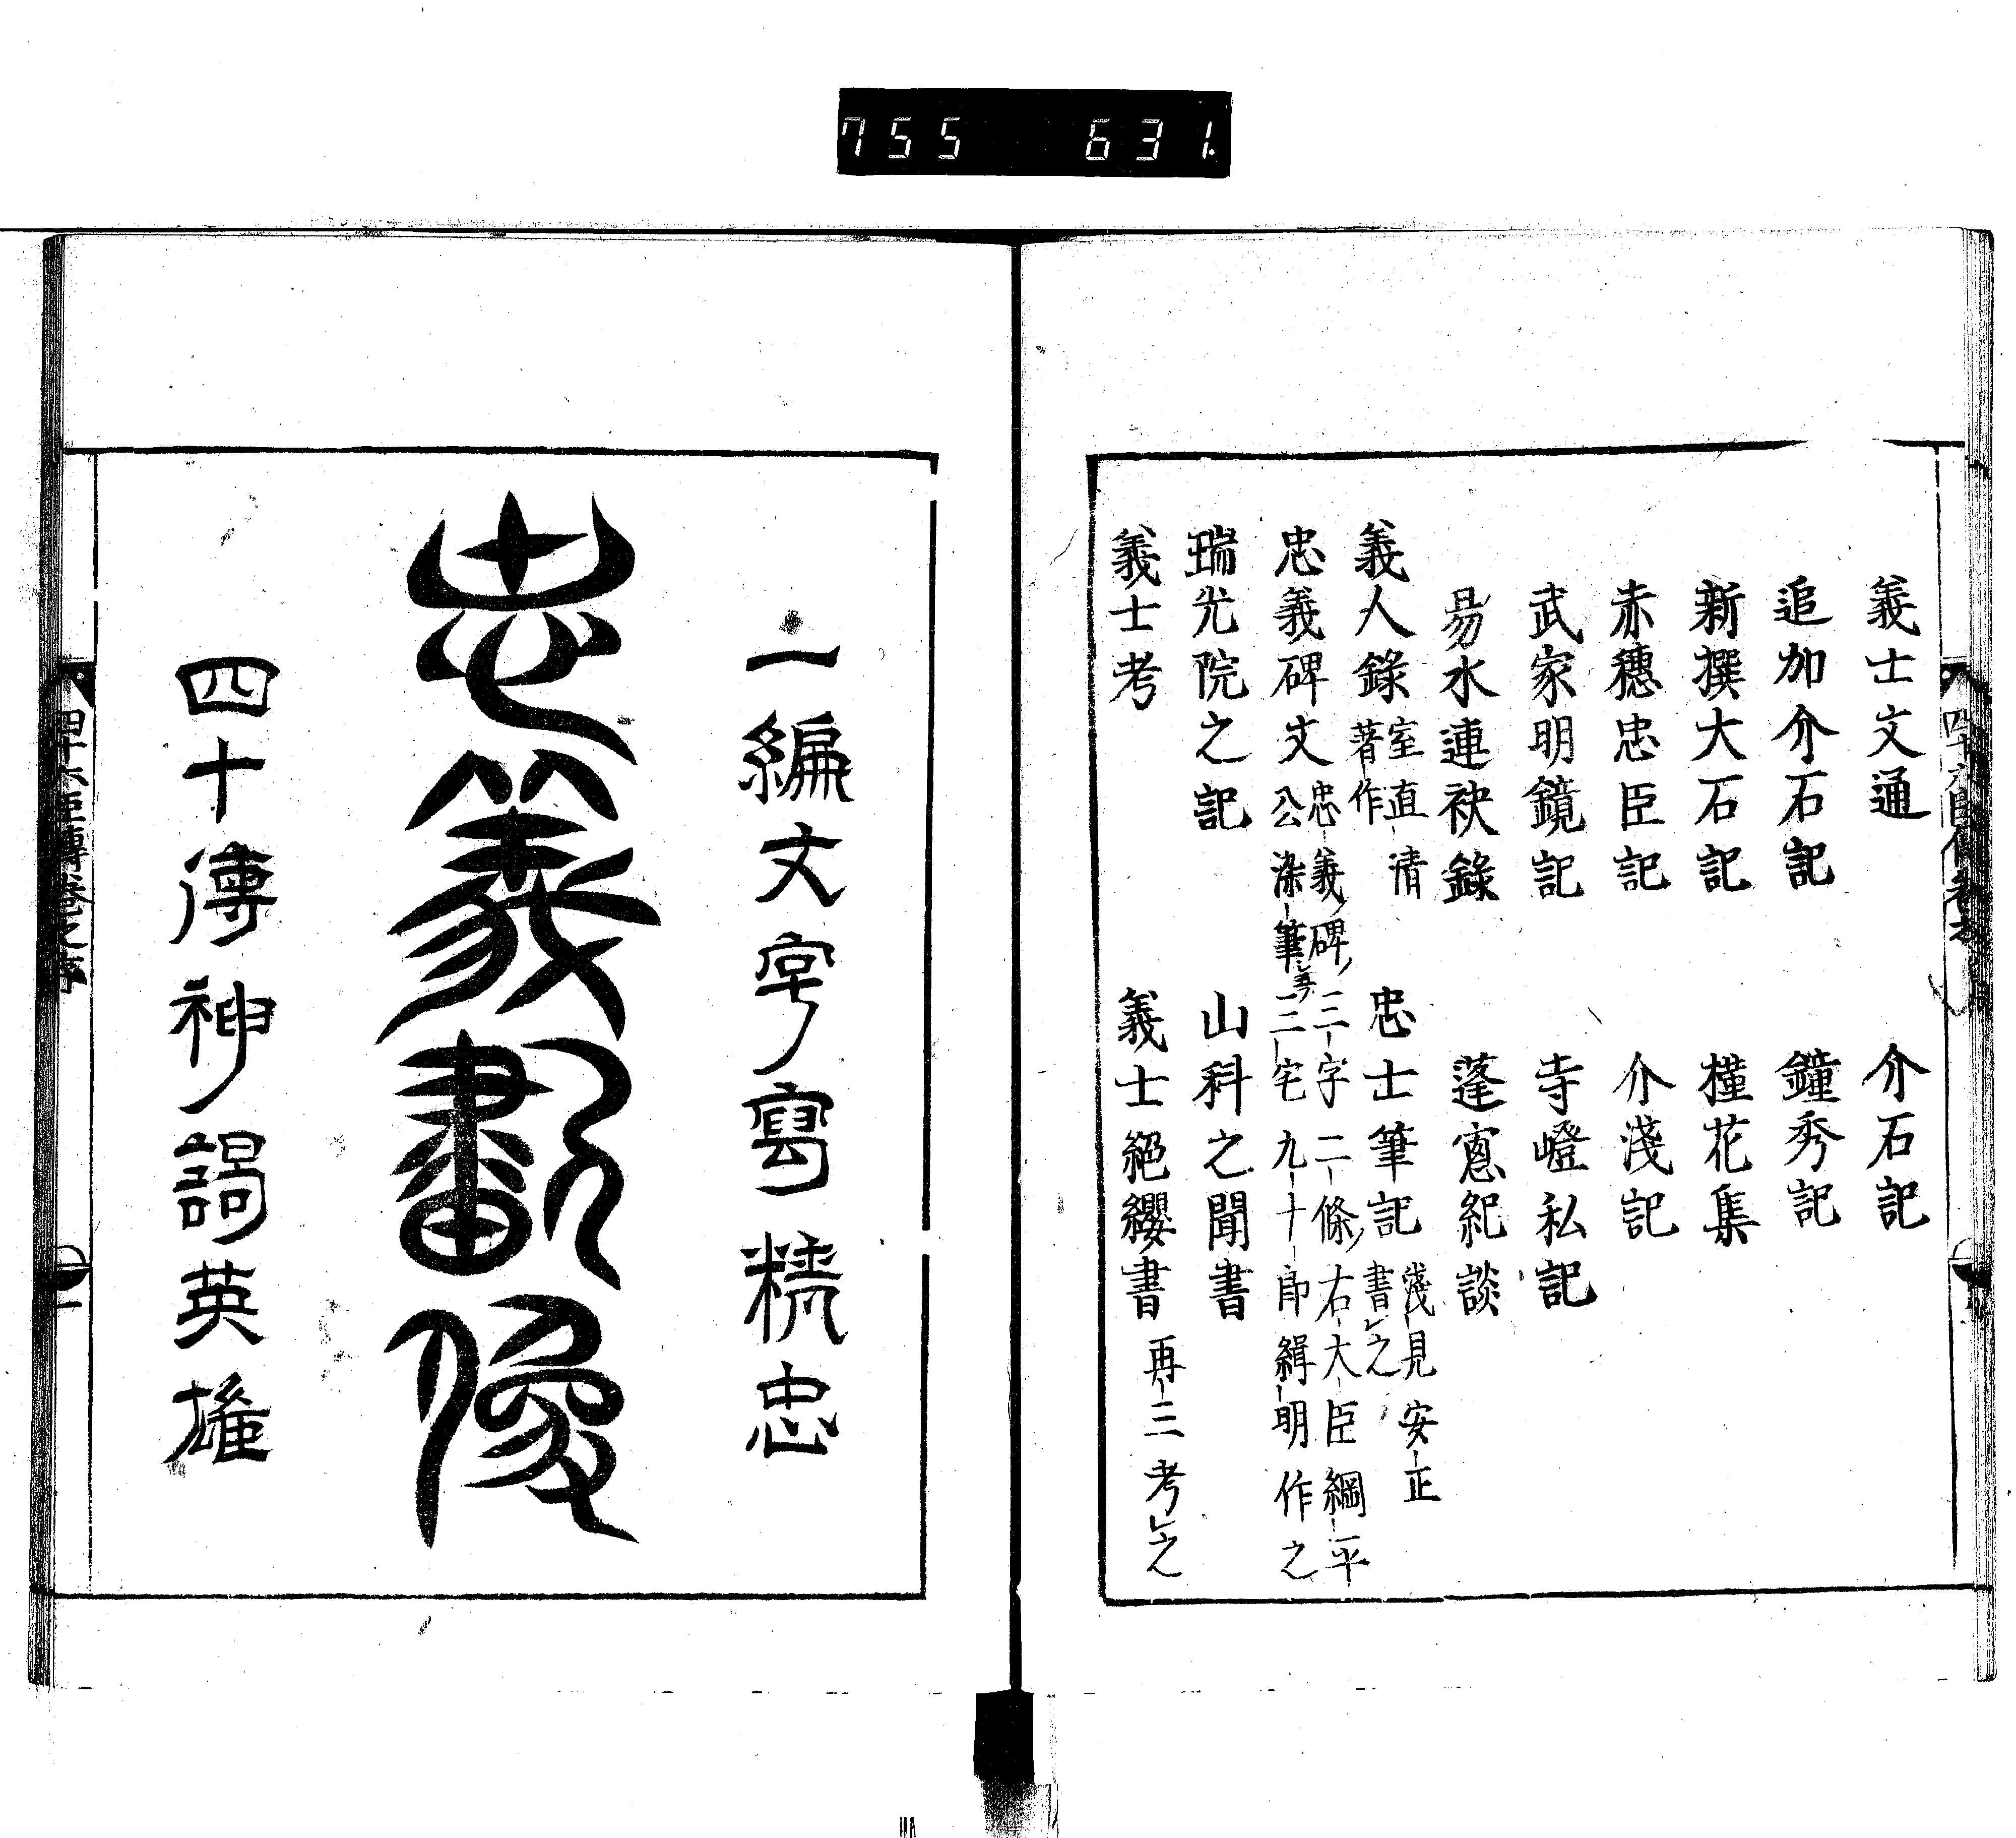 755 631.
義士文通 介石記
追加介石記 鐘秀記
新撰大石記 槿花集
赤穗忠臣記 介淺記
武家明鏡記 寺嶝私記
易水連袂錄 蓬窓紀談
義人錄 室直清著作 忠士筆記 淺見安正書之
忠義碑文 忠義碑三字二條右大臣綱平公染筆 三宅九十郎緝明作之
瑞光院之記 山科之聞書
義士考 義士絕纓書 再三考之
一編文字寫精忠
忠義畫像
四十傳神謁英雄
四十六臣傳卷之序